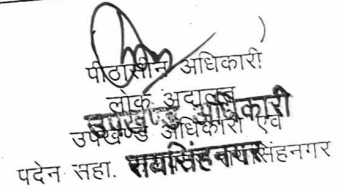 पीठासीन अधिकारी
लोक अदालत
उपखण्ड अधिकारी
उपखण्ड अधिकारी एवं
पदेन सहा. रायसिंहनगर सिंहनगर